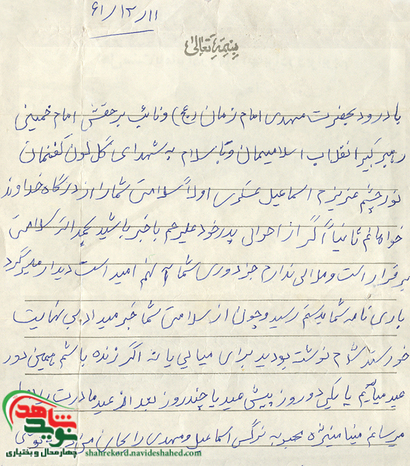 ۶۱/۱۲/۱۱
بسمه تعالی
با درود بحضرت مهدی امام زمان (عج) و نائب بر حقش امام خمینی
رهبر کبیر انقلاب اسلامیمان و با سلام به شهدای گلگون کفنمان
نور چشم عزیزم اسماعیل عسکری اولا سلامتی شما را از درگاه خداوند
خواهانم ثانیا اگر از احوال پدر خود علیرحم باخبر باشید بحمدالله سلامتی
برقرار است و ملالی ندارم جز دوری شما آنهم امید است دیدار میگردد
باری نامه شما بدستم رسید و چون از سلامتی شما خبر میداد بی نهایت
خورسند شدم نوشته بودید برای ما می یا نه اگر زنده باشم همین دور
عید میآئیم یا یکی دو روز پیش عید یا چند روز بعد از عید مادرت
میرسانم مینا منیژه محبوبه نرگس اسماعیل و مهدی را بجای من
نوید شاهد
چهارمحال و بختیاری
shahrekord.navideshahed.com